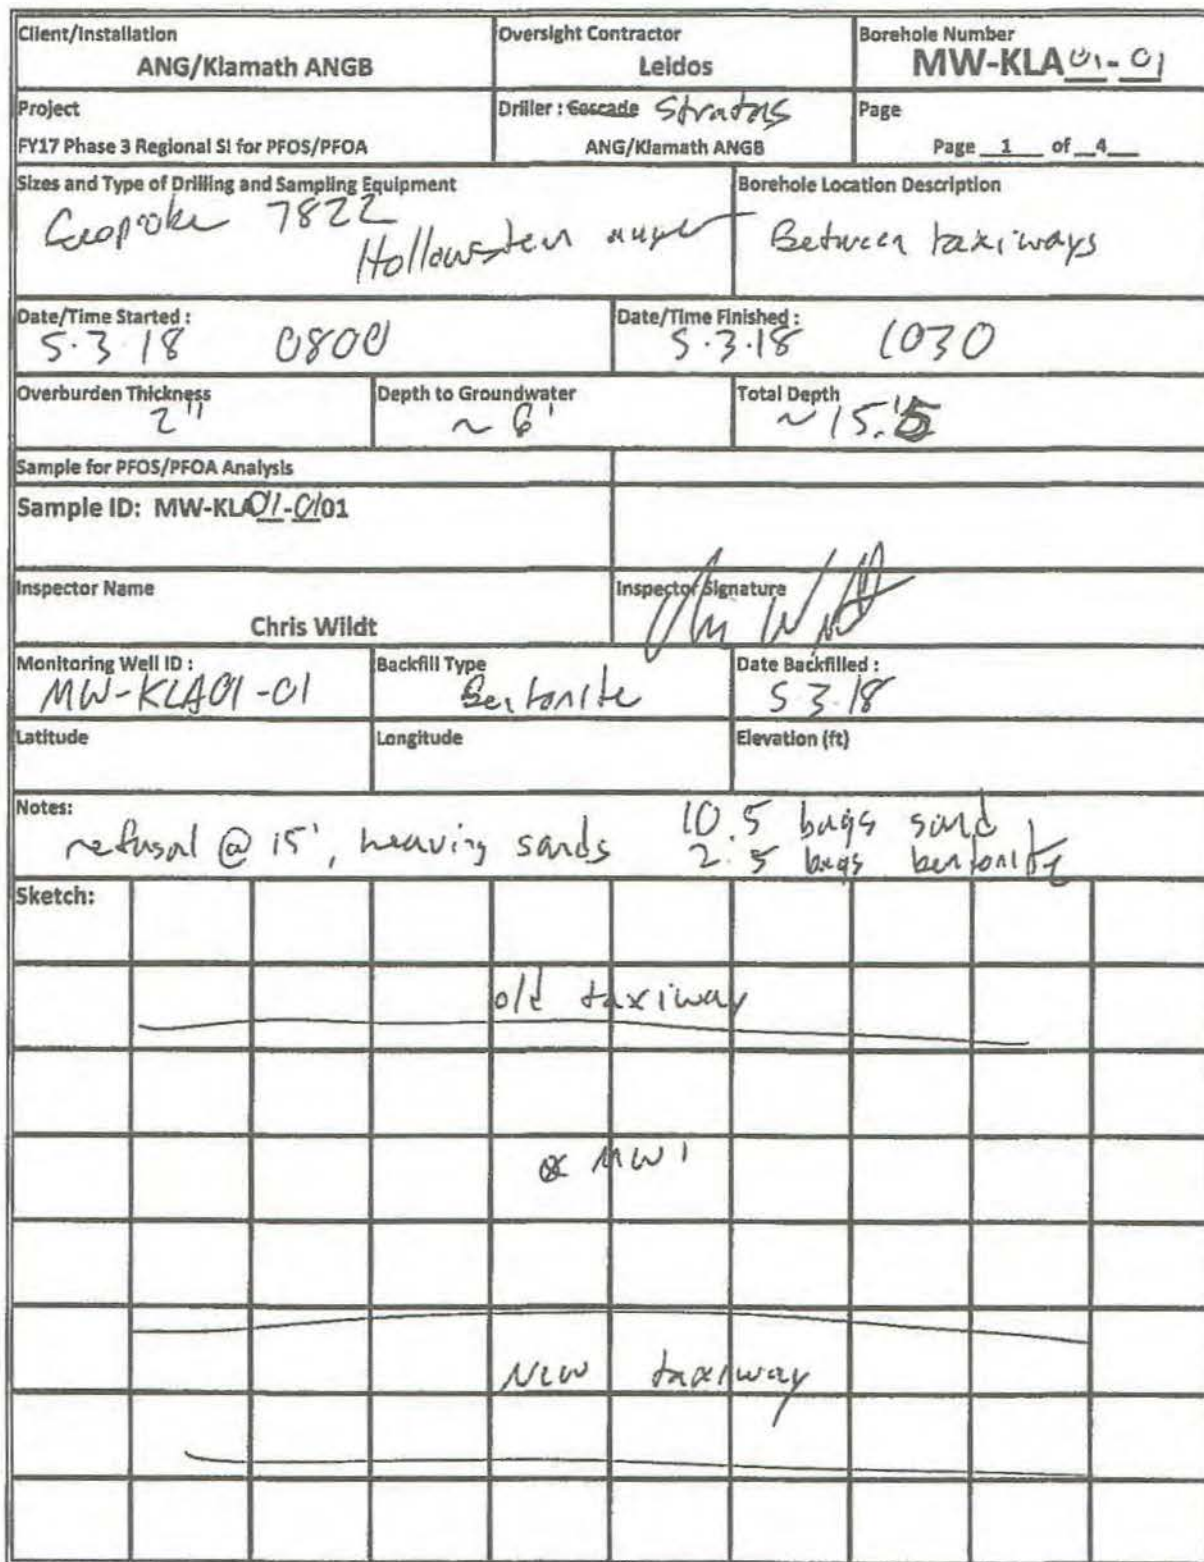 Client/Installation
ANG/Klamath ANGB
Oversight Contractor
Leidos
Borehole Number
MW-KLA01-01
Project
FY17 Phase 3 Regional SI for PFOS/PFOA
Driller : Cascade Stratus
ANG/Klamath ANGB
Page
Page 1 of 4
Sizes and Type of Drilling and Sampling Equipment
Geoprobe 7822
Hollowstem auger
Borehole Location Description
Between taxiways
Date/Time Started :
5.3.18 0800
Date/Time Finished :
5.3.18 1030
Overburden Thickness
2"
Depth to Groundwater
~ 6'
Total Depth
~ 15.5
Sample for PFOS/PFOA Analysis
Sample ID: MW-KLA01-0101
Inspector Name
Chris Wildt
Inspector Signature
Monitoring Well ID :
MW-KLA01-01
Backfill Type
Bentonite
Date Backfilled :
5 3.18
Latitude
Longitude
Elevation (ft)
Notes:
refusal @ 15', heaving sands
10.5 bags sand
2.5 bags bentonite
Sketch:
old taxiway
MW1
New taxiway